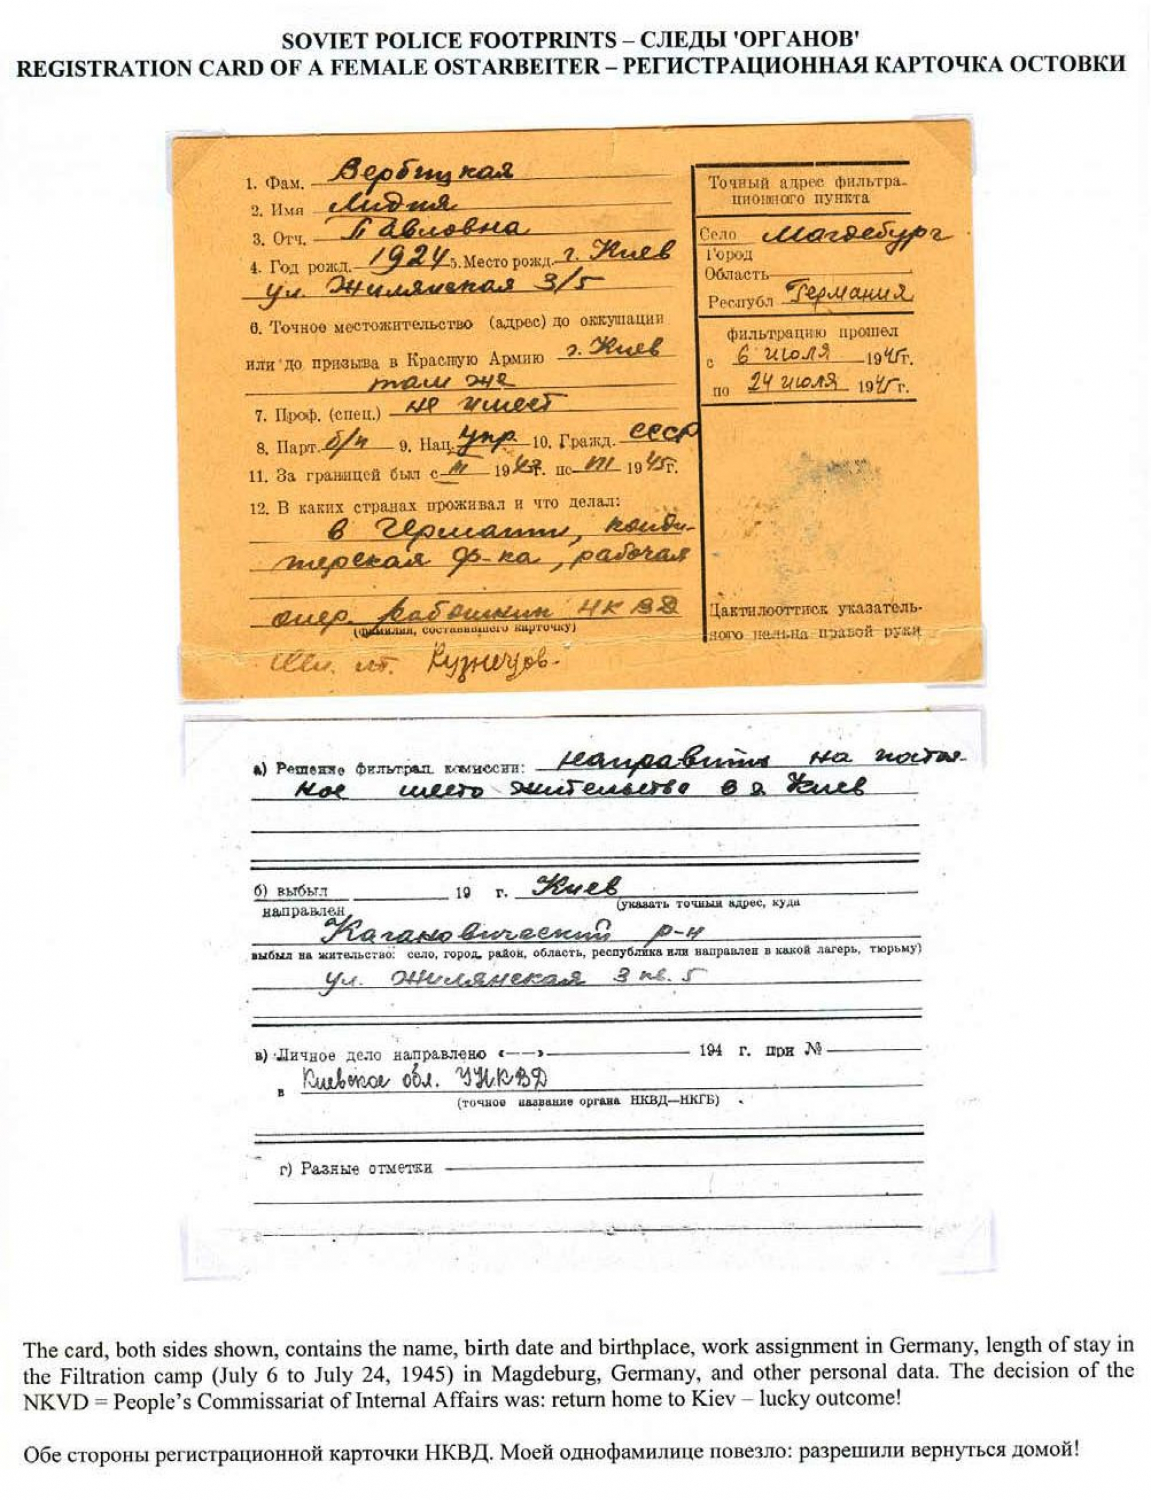 SOVIET POLICE FOOTPRINTS – СЛЕДЫ 'ОРГАНОВ'
REGISTRATION CARD OF A FEMALE OSTARBEITER – РЕГИСТРАЦИОННАЯ КАРТОЧКА ОСТОВКИ
1. Фам. Вербицкая
2. Имя Лидия
3. Отч. Павловна
4. Год рожд. 1924 5. Место рожд. г. Киев
ул. Жилянская 3/5
6. Точное местожительство (адрес) до оккупации
или до призыва в Красную Армию г. Киев
там же
7. Проф. (спец.) не имеет
8. Парт. б/п 9. Нац. укр. 10. Гражд. СССР
11. За границей был с 194 г. по VII 1945г.
12. В каких странах проживал и что делал:
в Германии, конди-
терская ф-ка, рабочая
опер. работник НКВД
(фамилия, составившего карточку)
лт. Кузнецов.
Точный адрес фильтра-
ционного пункта
Село Магдебург
Город
Область
Республ Германия
фильтрацию прошел
с 6 июля 1945г.
по 24 июля 1945г.
Дактилооттиск указатель-
ного пальца правой руки
а) Решение фильтрац. комиссии: направить на постоя-
ное место жительства в г. Киев
б) выбыл 19 г. Киев
направлен (указать точный адрес, куда
Кагановический р-н
выбыл на жительство: село, город, район, область, республика или направлен в какой лагерь, тюрьму)
ул. Жилянская 3 кв. 5
в) Личное дело направлено «——» 194 г. при №
в Киевское обл. УНКВД
(точное название органа НКВД—НКГБ)
г) Разные отметки
The card, both sides shown, contains the name, birth date and birthplace, work assignment in Germany, length of stay in
the Filtration camp (July 6 to July 24, 1945) in Magdeburg, Germany, and other personal data. The decision of the
NKVD = People's Commissariat of Internal Affairs was: return home to Kiev – lucky outcome!
Обе стороны регистрационной карточки НКВД. Моей однофамилице повезло: разрешили вернуться домой!